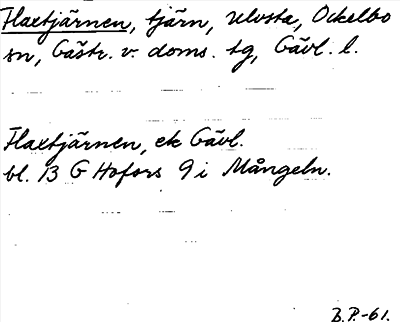 Flaxtjärnen, tjärn, Ulvsta, Ockelbo
sn, Gästr. v. doms. tg, Gävl. l.
Flaxtjärnen, ek Gävl.
bl. 13 G Hofors 9 i Mångeln.
B.P.-61.